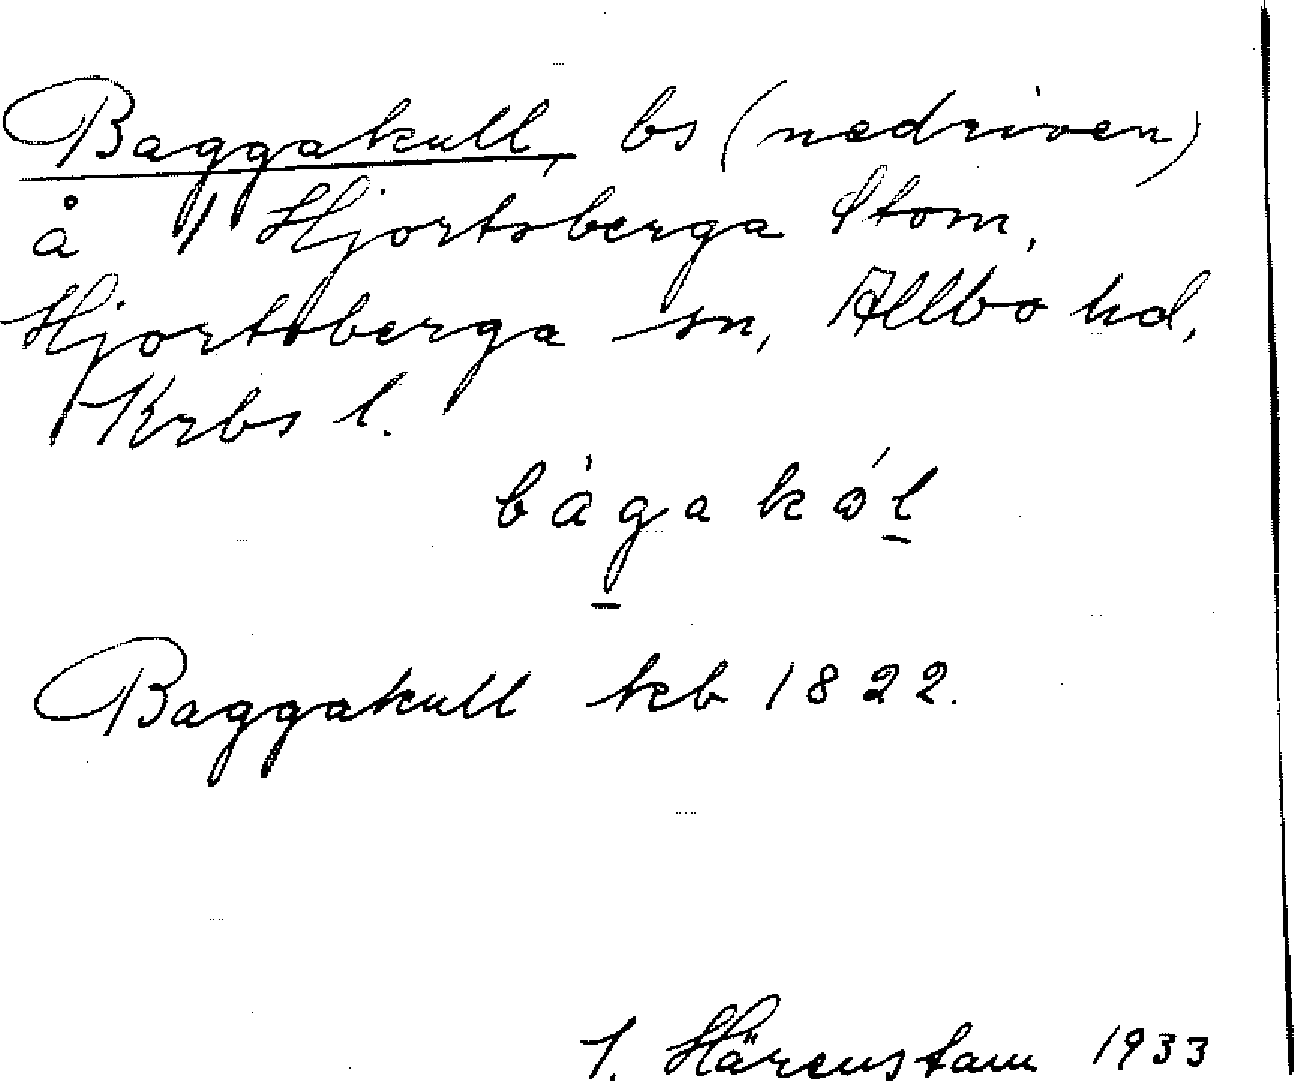 Baggakull, bs (nedriven)
å 1 Hjortsberga Stom,
Hjortsberga sn, Allbo hd,
Krbs l.
bágakól
Baggakull kb 1822.
J. Härenstam 1933